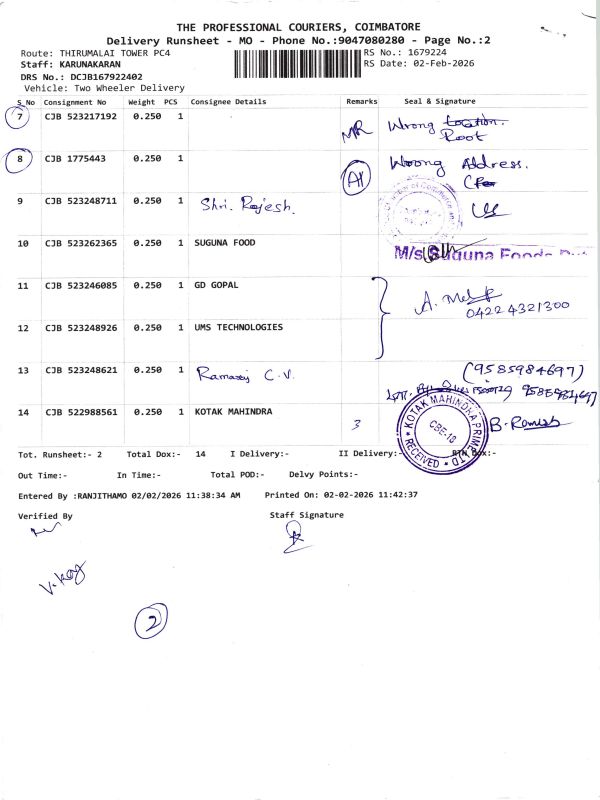 THE PROFESSIONAL COURIERS, COIMBATORE
Delivery Runsheet - MO - Phone No.:9047080280 - Page No.:2
Route: THIRUMALAI TOWER PC4 RS No.: 1679224
Staff: KARUNAKARAN RS Date: 02-Feb-2026
DRS No.: DCJB167922402
Vehicle: Two Wheeler Delivery
S_No Consignment No Weight PCS Consignee Details Remarks Seal & Signature
7 CJB 523217192 0.250 1 Wrong Location.
Root
8 CJB 1775443 0.250 1 Wrong Address.
9 CJB 523248711 0.250 1 Shri. Rajesh.
10 CJB 523262365 0.250 1 SUGUNA FOOD M/s Suguna Foods
11 CJB 523246085 0.250 1 GD GOPAL
04224321300
12 CJB 523248926 0.250 1 UMS TECHNOLOGIES
13 CJB 523248621 0.250 1 Ramaraj C.V. (9585984697)
14 CJB 522988561 0.250 1 KOTAK MAHINDRA 3 KOTAK MAHINDRA PRIME LTD CBE-18 RECEIVED B. Ramesh
Tot. Runsheet:- 2 Total Dox:- 14 I Delivery:- II Delivery:- RTN Dox:-
Out Time:- In Time:- Total POD:- Delvy Points:-
Entered By :RANJITHAMO 02/02/2026 11:38:34 AM Printed On: 02-02-2026 11:42:37
Verified By Staff Signature
2